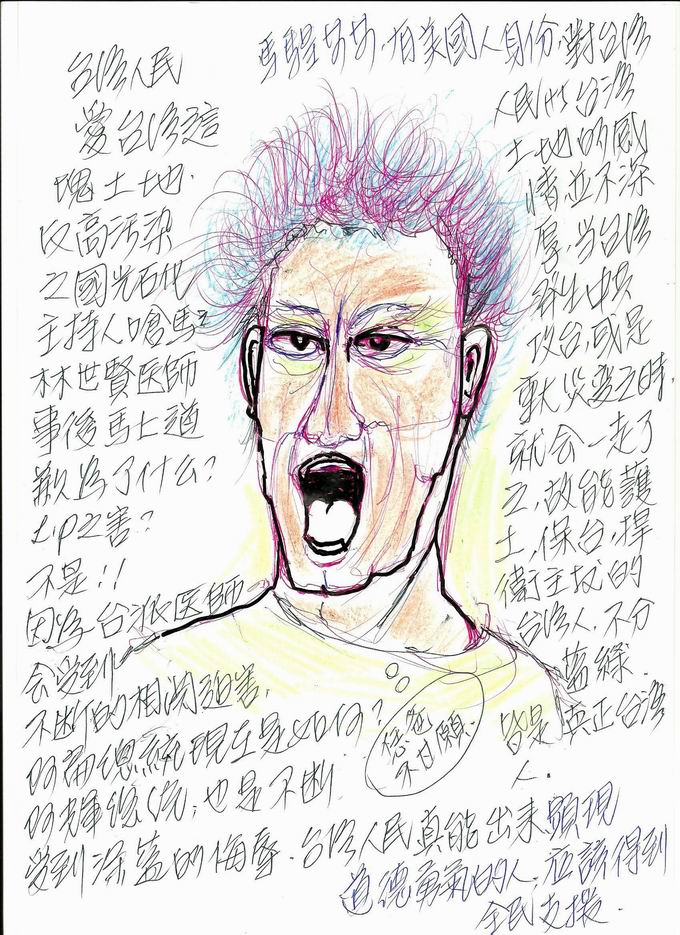 台湾人民
愛台湾這
塊土地.
反高汚染
之國光石化
主持人嗆馬之
林世賢医師
事後馬上道
歉為了什么?
LP之害?
不是!!
因為台派医師
会受到
不断的相関迫害,
阿扁總統現在是如何?
阿輝總统,也是不断
受到深藍的侮辱.台湾人民真能出來顕現
道德勇氣的人,应該得到
全民支援.
有美國人身份,對台湾
人民 台湾
土地的感
情並不深
厚,当台湾
發生中共
攻台,或是
重大災变之時,
就会一走了
之,故能護
土,保台,捍
衛主权的
台湾人,不分
藍綠.
皆是真正台湾
人.
恁爸
不甘願.